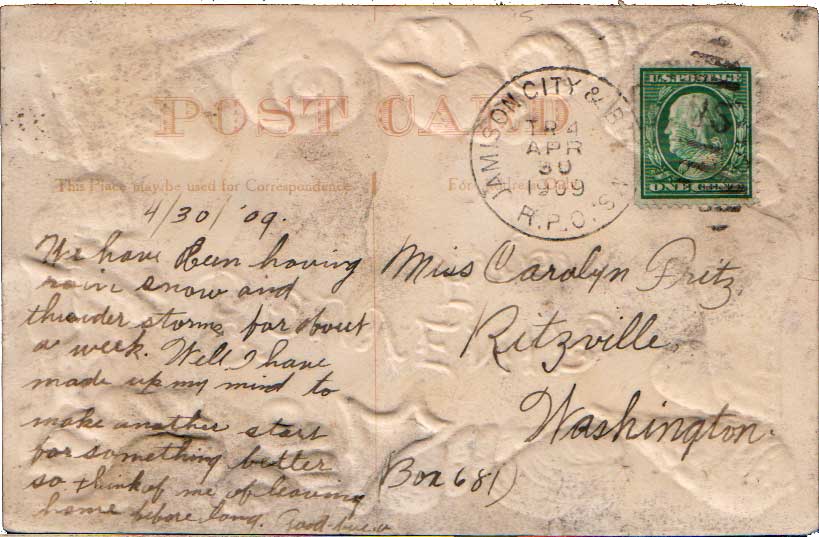 POST CARD
This Place may be used for Correspondence
For Address Only
JAMISON CITY &
TR 4
APR
30
1909
R.P.O.
U.S. POSTAGE
ONE CENT
4/30/'09.
We have been having
rain snow and
thunder storms for about
a week. Well I have
made up my mind to
make another start
for something better
so think of me of leaving
home before long. Good-bye
Miss Carolyn Fritz
Ritzville
Washington.
(Box 681)